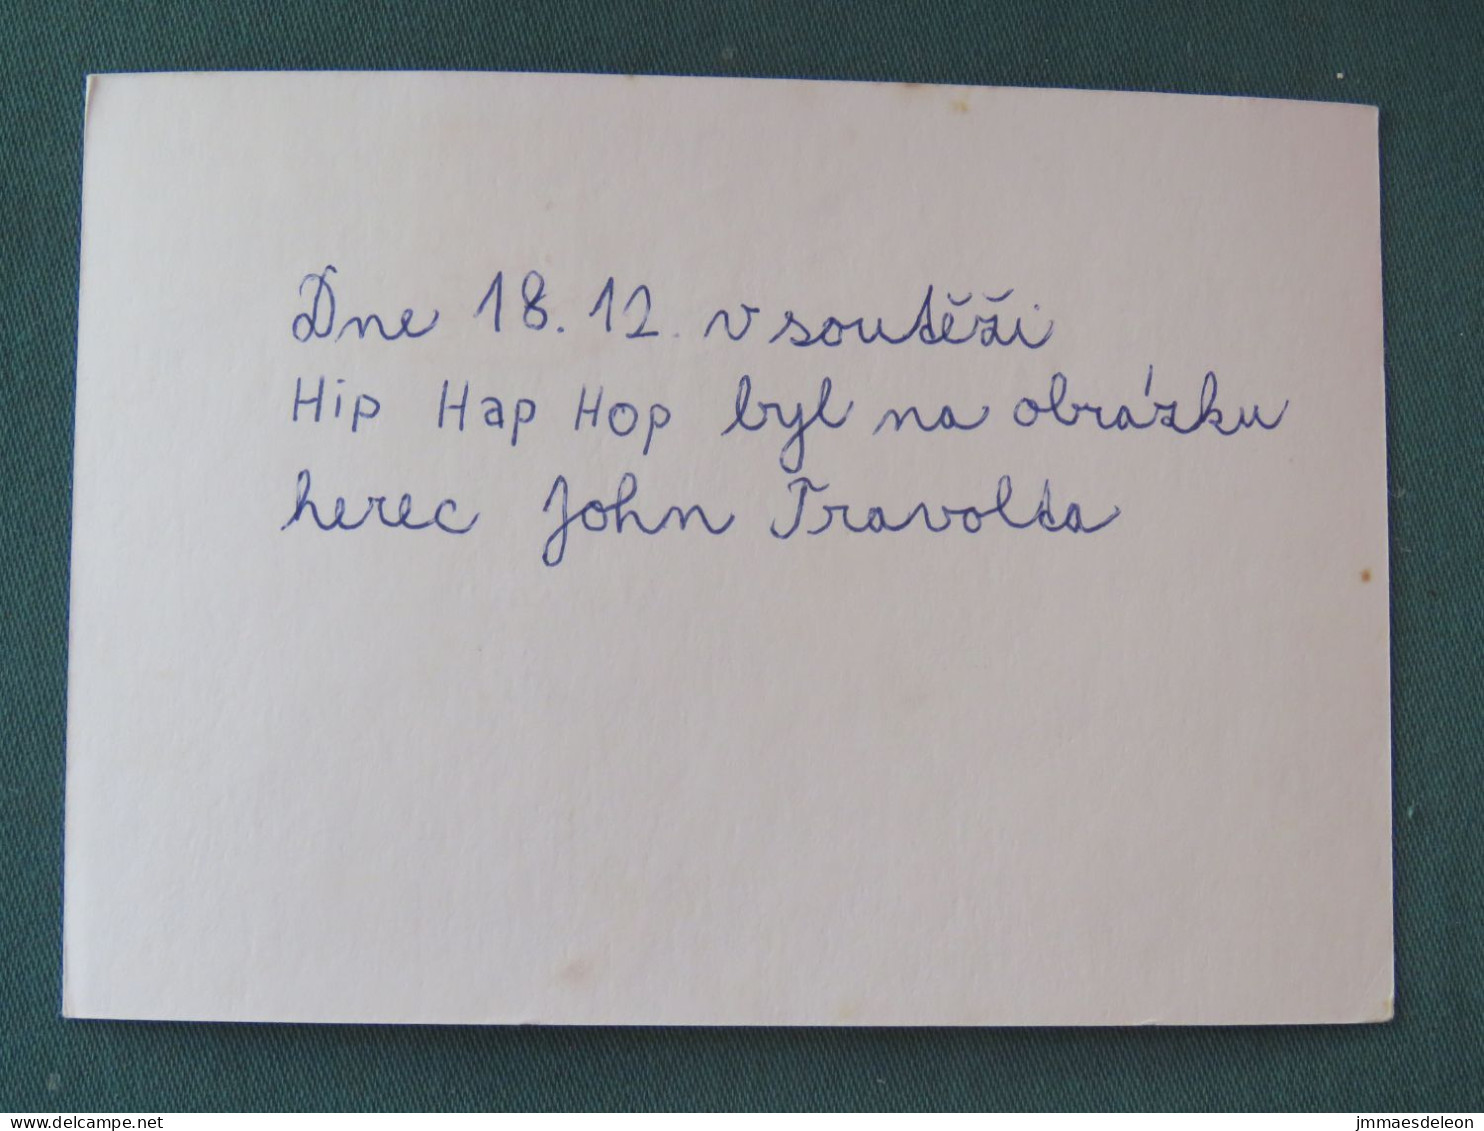 Dne 18.12. v soutěži
Hip Hap Hop byl na obrázku
herec John Travolta
delcampe.net
jmmaesdeleon